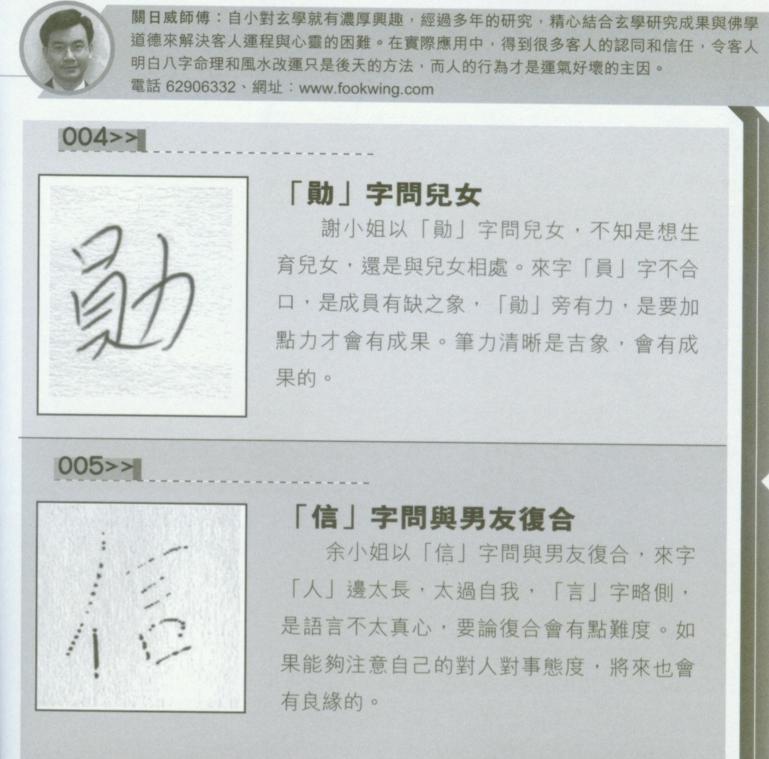 關日威師傅：自小對玄學就有濃厚興趣，經過多年的研究，精心結合玄學研究成果與佛學
道德來解決客人運程與心靈的困難。在實際應用中，得到很多客人的認同和信任，令客人
明白八字命理和風水改運只是後天的方法，而人的行為才是運氣好壞的主因。
電話 62906332、網址：www.fookwing.com
004>>
勛
「勛」字問兒女
謝小姐以「勛」字問兒女，不知是想生
育兒女，還是與兒女相處。來字「員」字不合
口，是成員有缺之象，「勛」旁有力，是要加
點力才會有成果。筆力清晰是吉象，會有成
果的。
005>>
信
「信」字問與男友復合
余小姐以「信」字問與男友復合，來字
「人」邊太長，太過自我，「言」字略側，
是語言不太真心，要論復合會有點難度。如
果能夠注意自己的對人對事態度，將來也會
有良緣的。